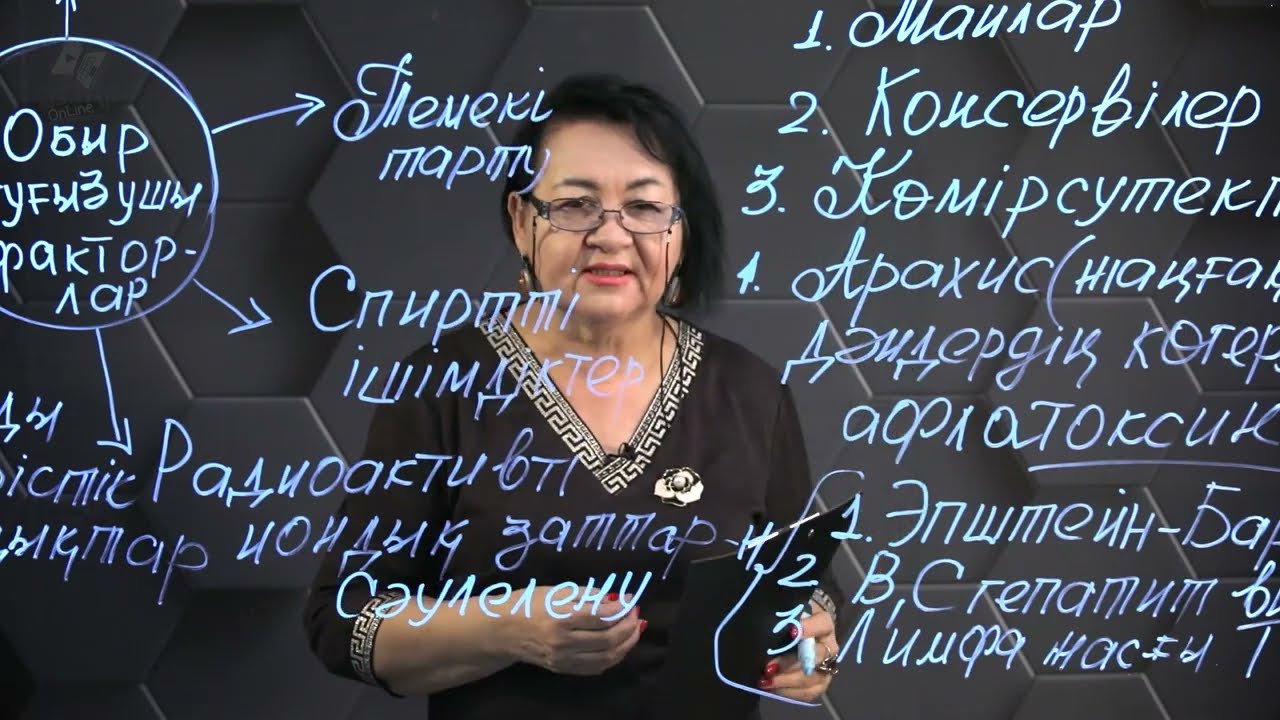 OnLine
Обыр
туғызушы
фактор-
лар
Темекі
тарту
Спиртті
ішімдіктер
Радиоактивті
иондық заттар-н/
Сәулелену
1. Майлар
2. Консервілер
3. Көмірсутект
1. Арахис (жаңға
дәндердің көгер
афлотоксин
1. Эпштейн-Бар
2. В,С гепатит ви
3. Лимфа жасғы Т